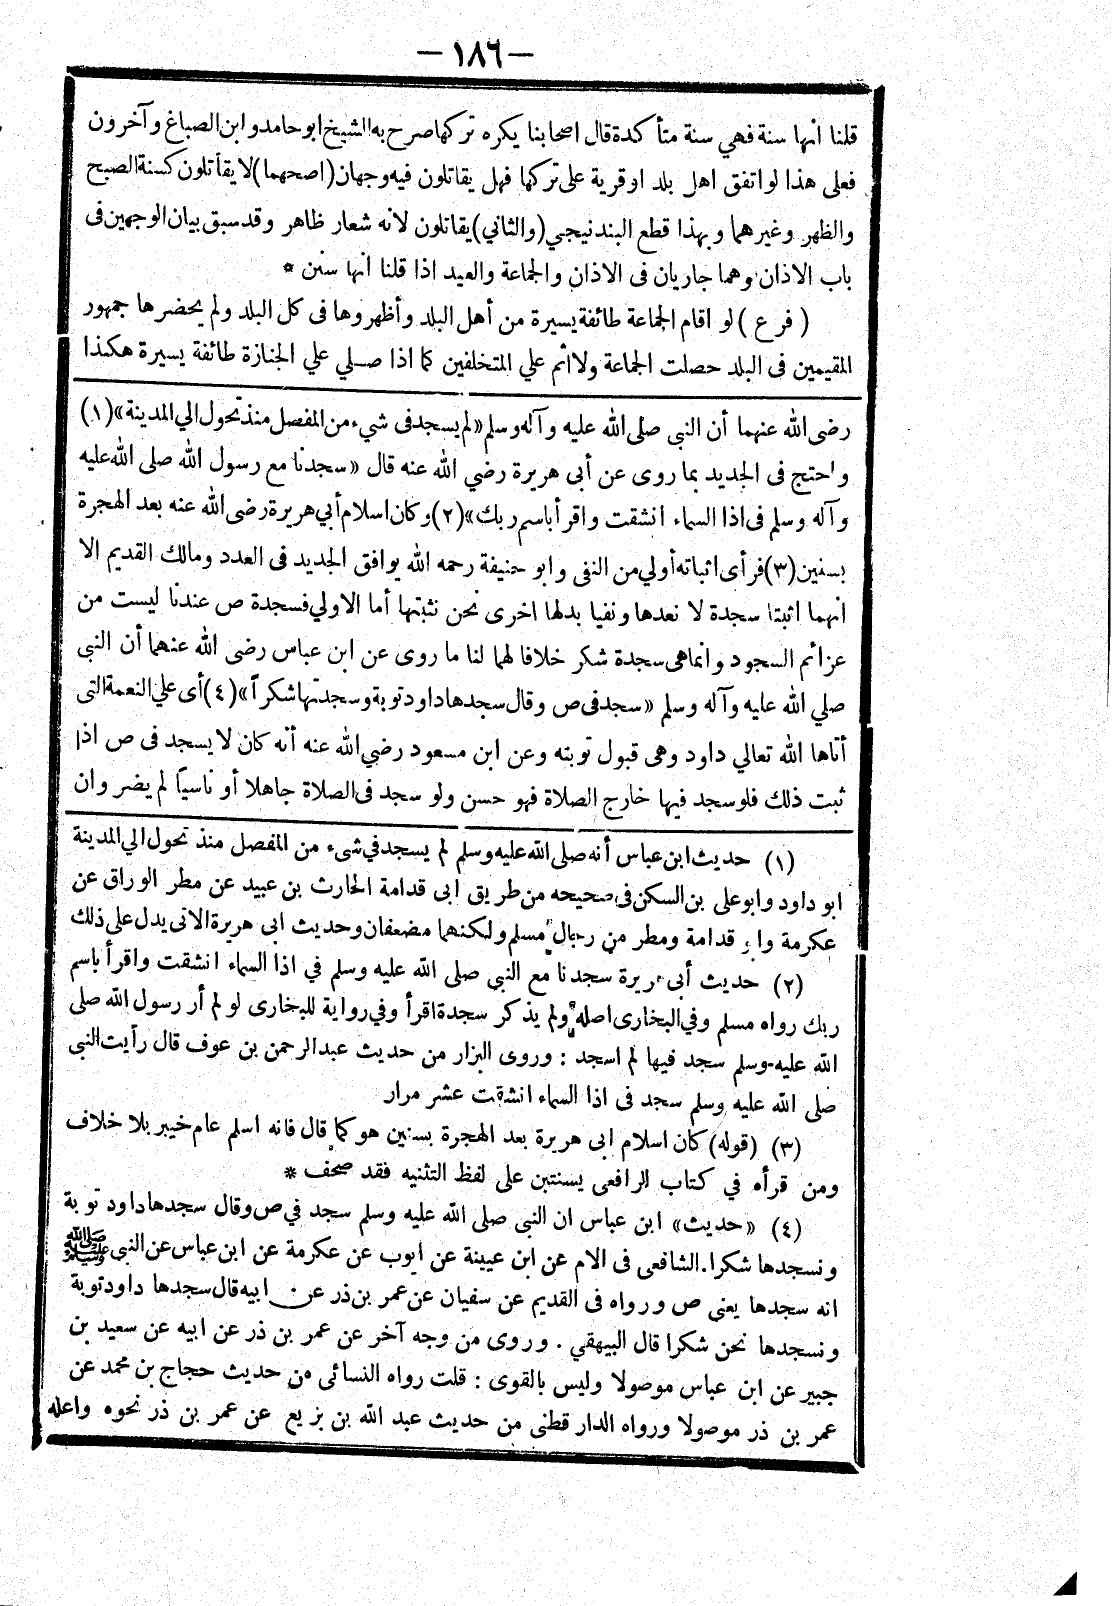 — ١٨٦ —
قلنا انها سنة فهي سنة متأكدة قال اصحابنا يكره تركها صرح به الشيخ ابو حامد وابن الصباغ وآخرون
فعلى هذا لو اتفق اهل بلد او قرية على تركها فهل يقاتلون فيه وجهان (اصحهما) لا يقاتلون كسنة الصبح
والظهر وغيرهما وبهذا قطع البندنيجي (والثاني) يقاتلون لانه شعار ظاهر وقد سبق بيان الوجهين فى
باب الاذان وهما جاريان فى الاذان والجماعة والعيد اذا قلنا انها سنن *
(فرع) لو اقام الجماعة طائفة يسيرة من أهل البلد وأظهروها فى كل البلد ولم يحضرها جمهور
المقيمين فى البلد حصلت الجماعة ولا اثم علي المتخلفين كما اذا صلي علي الجنازة طائفة يسيرة هكذا
رضى الله عنهما أن النبى صلى الله عليه وآله وسلم «لم يسجد فى شيء من المفصل منذ تحول الي المدينة» (١)
واحتج فى الجديد بما روى عن أبى هريرة رضي الله عنه قال «سجدنا مع رسول الله صلى الله عليه
وآله وسلم فى اذا السماء انشقت واقرأ باسم ربك» (٢) وكان اسلام أبي هريرة رضى الله عنه بعد الهجرة
بسنين (٣) فرأى اثباته أولي من النفى وابو حنيفة رحمه الله يوافق الجديد فى العدد ومالك القديم الا
انهما اثبتا سجدة لا نعدها ونفيا بدلها اخرى نحن نثبتها أما الاولي فسجدة ص عندنا ليست من
عزائم السجود وانما هى سجدة شكر خلافا لهما لنا ما روى عن ابن عباس رضى الله عنهما أن النبي
صلي الله عليه وآله وسلم «سجد فى ص وقال سجدها داود توبة وسجدتها شكراً» (٤) أى علي النعمة التى
أتاها الله تعالي داود وهى قبول توبته وعن ابن مسعود رضي الله عنه أنه كان لا يسجد فى ص اذا
ثبت ذلك فلو سجد فيها خارج الصلاة فهو حسن ولو سجد فى الصلاة جاهلا أو ناسياً لم يضر وان
(١) حديث ابن عباس أنه صلى الله عليه وسلم لم يسجد في شىء من المفصل منذ تحول الي المدينة
ابو داود وابو على بن السكن فى صحيحه من طريق ابى قدامة الحارث بن عبيد عن مطر الوراق عن
عكرمة وابو قدامة ومطر من رجال مسلم ولكنهما مضعفان وحديث ابى هريرة الاتى يدل على ذلك
(٢) حديث أبى هريرة سجدنا مع النبي صلى الله عليه وسلم في اذا السماء انشقت واقرأ باسم
ربك رواه مسلم وفي البخارى اصله ولم يذكر سجدة اقرأ وفي رواية للبخارى لو لم أر رسول الله صلى
الله عليه وسلم سجد فيها لم اسجد : وروى البزار من حديث عبد الرحمن بن عوف قال رأيت النبى
صلى الله عليه وسلم سجد فى اذا السماء انشقت عشر مرار
(٣) (قوله) كان اسلام ابى هريرة بعد الهجرة بسنين هو كما قال فانه اسلم عام خيبر بلا خلاف
ومن قرأه في كتاب الرافعى بسنتين على لفظ التثنيه فقد صحف *
(٤) «حديث» ابن عباس ان النبى صلى الله عليه وسلم سجد في ص وقال سجدها داود توبة
ونسجدها شكرا. الشافعى فى الام عن ابن عيينة عن ايوب عن عكرمة عن ابن عباس عن النبي ﷺ
انه سجدها يعني ص ورواه فى القديم عن سفيان عن عمر بن ذر عن ابيه قال سجدها داود توبة
ونسجدها نحن شكرا قال البيهقي . وروى من وجه آخر عن عمر بن ذر عن ابيه عن سعيد بن
جبير عن ابن عباس موصولا وليس بالقوى : قلت رواه النسائى من حديث حجاج بن محمد عن
عمر بن ذر موصولا ورواه الدار قطنى من حديث عبد الله بن بزيع عن عمر بن ذر نحوه واعله